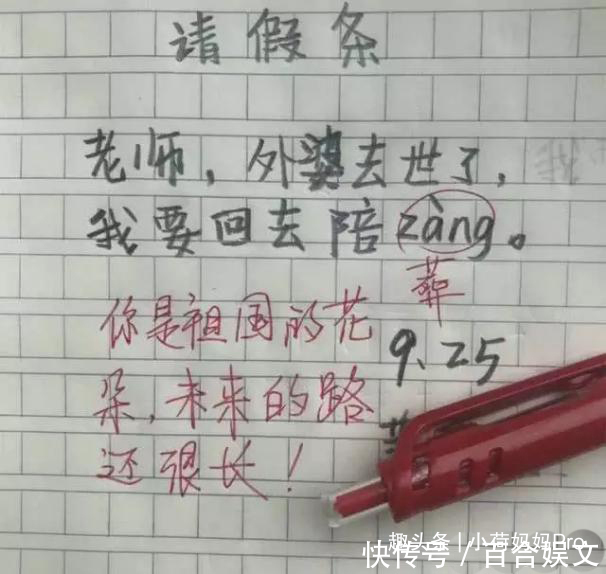 请假条
老师，外婆去世了，
我要回去陪zàng。
葬
你是祖国的花
9.25
朵，未来的路
还很长！
趣头条 | 小荷妈妈Pro
快传号／百合娱文